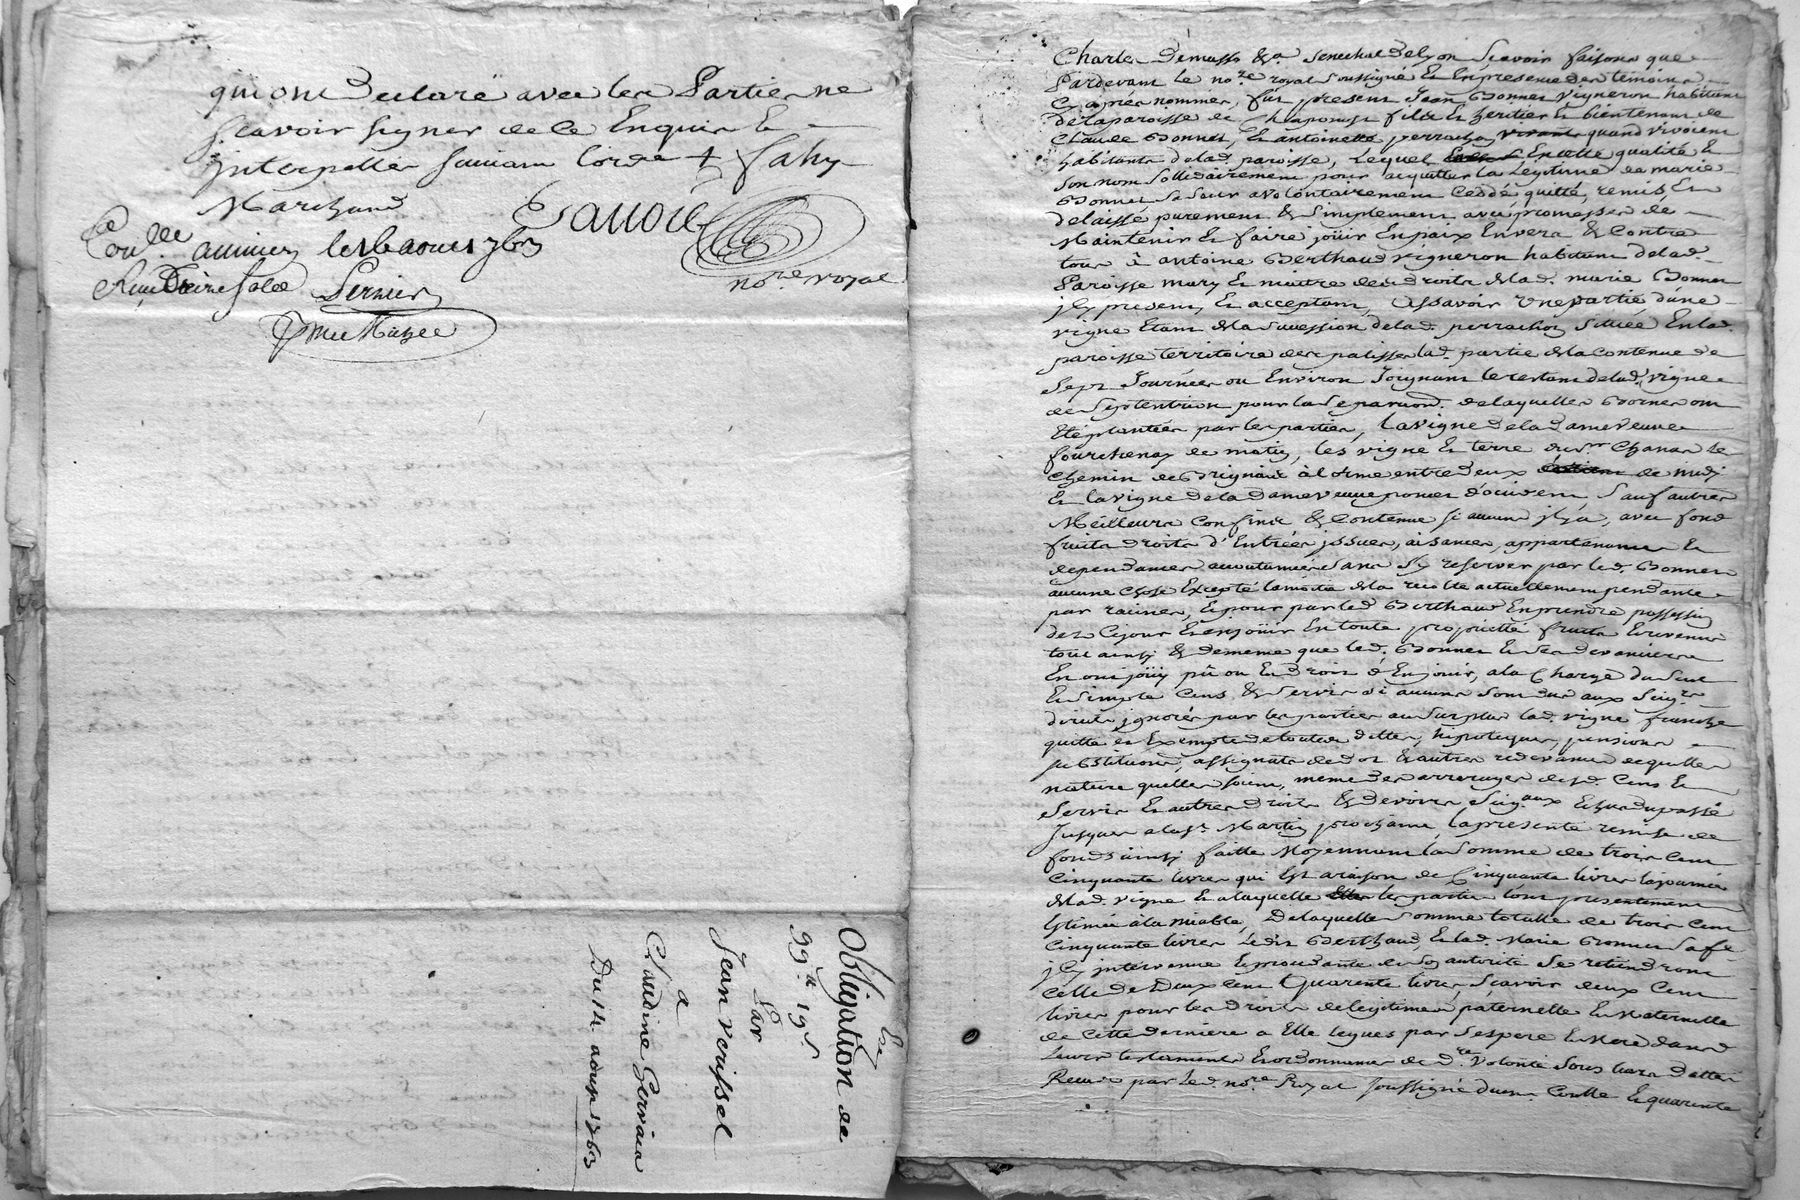 qui ont Declaré avec les Parties ne
scavoir signer de ce Enquis &
Interpellés suivant l'ord.ce + Jahy
Marchand
not.re royal
Con.lle a                    le                aoust 1763
Reçu Treize sols
Obligation de
99# 19s.
Par
Jean Verissel
a
Claudine Gervais
Du 14 aoust 1763
Charles Demasso &.a senechal de Lyon Scavoir faisons que
Pardevant le no.re royal soussigné & en presence des témoins
Cy apres nommés, fut present Jean Bonnet vigneron habitant
de la paroisse de Chaponost fils & heritier & bientenant de
Claude Bonnet, & antoinette perrachon quand vivoient
habitants de lad. paroisse, Lequel En cette qualité &
Son nom Sollidairement pour acquitter la Legitime de marie
Bonnet sa sœur a volontairement Ceddé, quitté, remis, &
delaissé purement & simplement avec promesses de
Maintenir & faire joüir En paix Envers & Contre
tous à antoine Berthaud vigneron habitant de lad.
Paroisse mary & maitre des droits de lad. marie Bonnet
jcy present, & acceptant, Assavoir Une partie d'une
vigne Etant de la succession de lad. perrachon Située En lad.
paroisse territoire des palisses lad. partie de la Contenue de
Sept Journées ou Environ Joignant le restant de lad. vigne
de Septentrion pour la Separaôn. de laquelle Bornes ont
Eté plantées par les parties, la vigne de la dame veuve
de matin, les vigne & terre du s.r le
Chemin de Brignais à lorme entre deux de midy
& la vigne de la dame veuve d'occident, Sauf autres
Meilleurs Confins & Contenue si aucuns jl y à, avec fond
fruits droits d'Entrées jssues, aisances, appartenances &
dependances accoutumées sans S'y reserver par led. Bonnet
aucune Chose Excepté la moitié de la recolte actuellement pendante
par racines, & pour par led Berthaud En prendre possession
dez Cejour & en joüir En toute proprieté fruits & revenus
tout ainsy & de meme que led. Bonnet & ses devanciers
En ont joüy pû ou Eu droit d'En joüir, a la Charge du Seul
& simple Cens & Servis si aucuns sont dus aux Seig.rs
directs jgnorés par les parties au surplus lad. vigne franche
quitte & Exempte de toutes dettes, hipoteques, pensions
substitutions, assignats de dot & autres redevances de quelle
nature quelles soient, meme des arrerages desd. Cens &
Servis & autres droits & devoirs Seig.aux Echus du passé
Jusques a la s.t Martin prochaine, la presente remise de
fonds ainsy faitte Moyennant la Somme de trois Cent
Cinquante livres qui est a raison de Cinquante livres la journée
de lad. vigne & a laquelle les parties lont presentement
Estimée à la miable, De laquelle somme totalle de trois Cent
Cinquante livres Ledit Berthaud, & lad. Marie Bonnet sa fe.
jcy intervenue & procedante de son autorité se retiendront
Celle de Deux Cent Quarente livres Scavoir deux Cent
livres pour les droits de legitimes paternelle & Maternelle
de Cette derniere a Elle legués par Ses pere & Mere dans
Leurs testaments & ordonnances de d.re Volonté sous leurs dattes
Reçus par led. no.re Royal soussigné & quarente